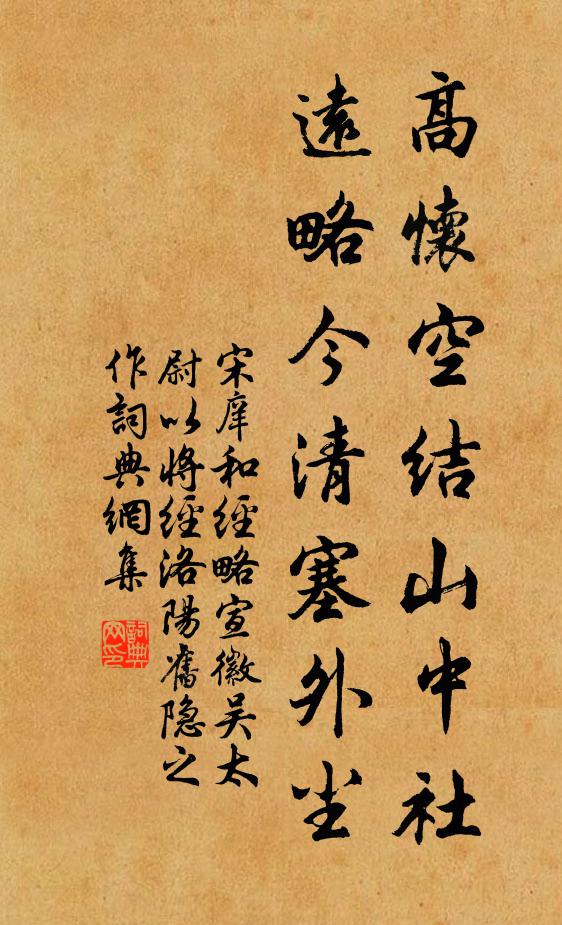 高懷空結山中社
遠略今清塞外尘
宋庠和經略宣徽吴太
尉以將經洛陽舊隐之
作詞典網集
詞典
网印